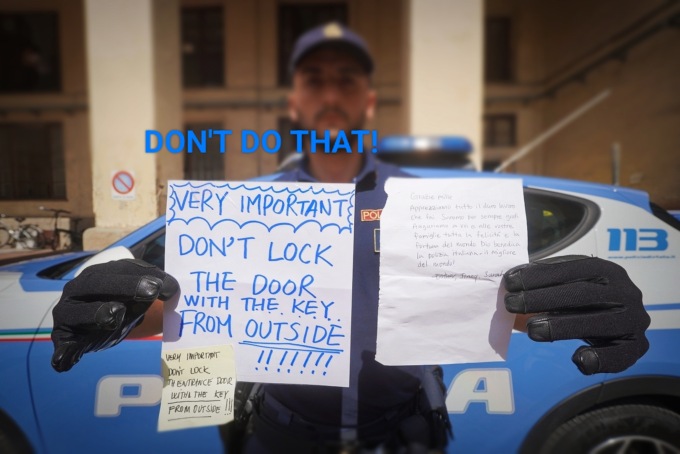 DON'T DO THAT!
VERY IMPORTANT
DON'T LOCK
THE DOOR
WITH THE KEY
FROM OUTSIDE
!!!!!!!
VERY IMPORTANT
DON'T LOCK
THE ENTRANCE DOOR
WITH THE KEY
FROM OUTSIDE !!!
Grazie mille
Apprezziamo tutto il duro lavoro
che fai. Saremo per sempre grati
Auguriamo a voi e alle vostre
famiglie tutta la felicità e la
fortuna del mondo. Dio benedica
la polizia italiana, il migliore
del mondo!
POL
113
P
A